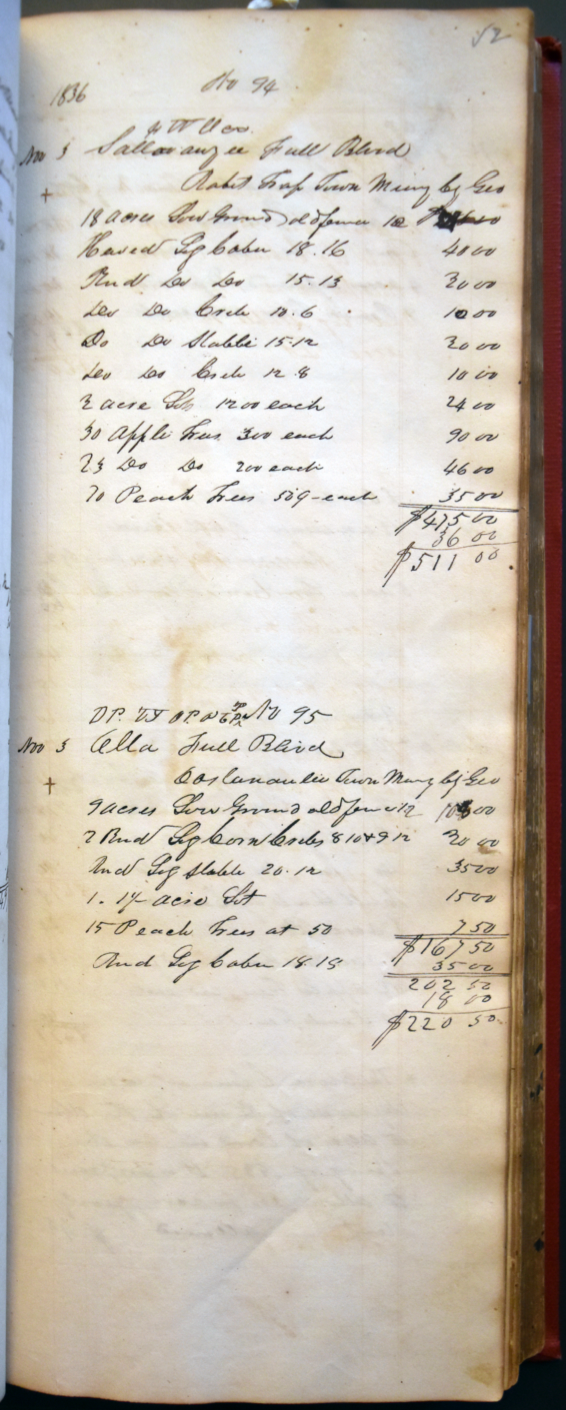 52
1836 No 94
Nov 3 Full Blood
Town Murry Cty Geo
18 acres Low Ground old fence 12
Hewed Log Cabin 18.16 40 00
Rnd Do Do 15.13 20 00
Do Do Crib 10.6 10 00
Do Do Stable 15.12 20 00
Do Do Crib 12.8 10 00
2 acre Lots 12 00 each 24 00
30 Apple Trees 3 00 each 90 00
23 Do Do 2 00 each 46 00
70 Peach Trees 50 each 35 00
$475 00
36 00
$511 00
No 95
Nov 3 Full Blood
Oostanaulee Town Murry Cty Geo
9 acres Low Ground old fence 12 00
2 Rnd Log Corn Cribs 8 10 & 9 12 20 00
Rnd Log Stable 20.12 35 00
1. acre Lot 15 00
15 Peach Trees at 50 7 50
$167 50
Rnd Log Cabin 18.18 35 00
202 50
18 00
$220 50